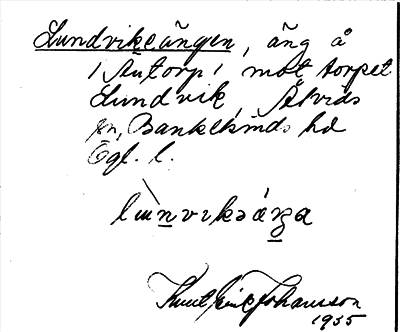 Lundviksängen, äng å
/Autorp/ mot torpet
Lundvik, Åtvids
sn, Bankekinds hd
Ögl. l.
Knut Erik Johansson
1935